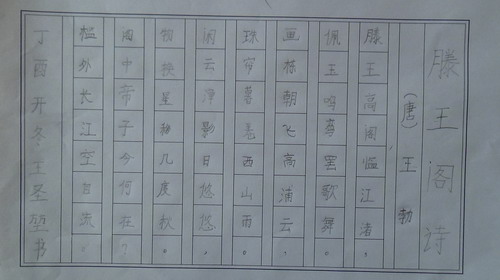 滕王阁诗
(唐) 王勃
滕王高阁临江渚,
佩玉鸣鸾罢歌舞。
画栋朝飞南浦云,
珠帘暮卷西山雨。
闲云潭影日悠悠,
物换星移几度秋。
阁中帝子今何在?
槛外长江空自流。
丁酉开冬王圣堃书